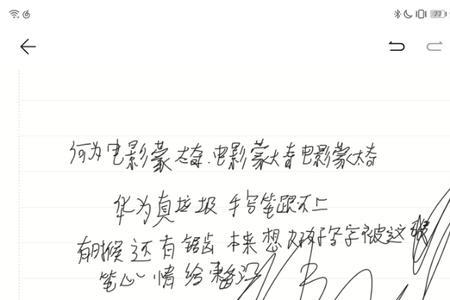 何为电影蒙太奇.电影蒙太奇电影蒙太奇
华为真垃圾 手写笔跟不上
有时候还有锯齿 本来想好好写字被这
笔心情给